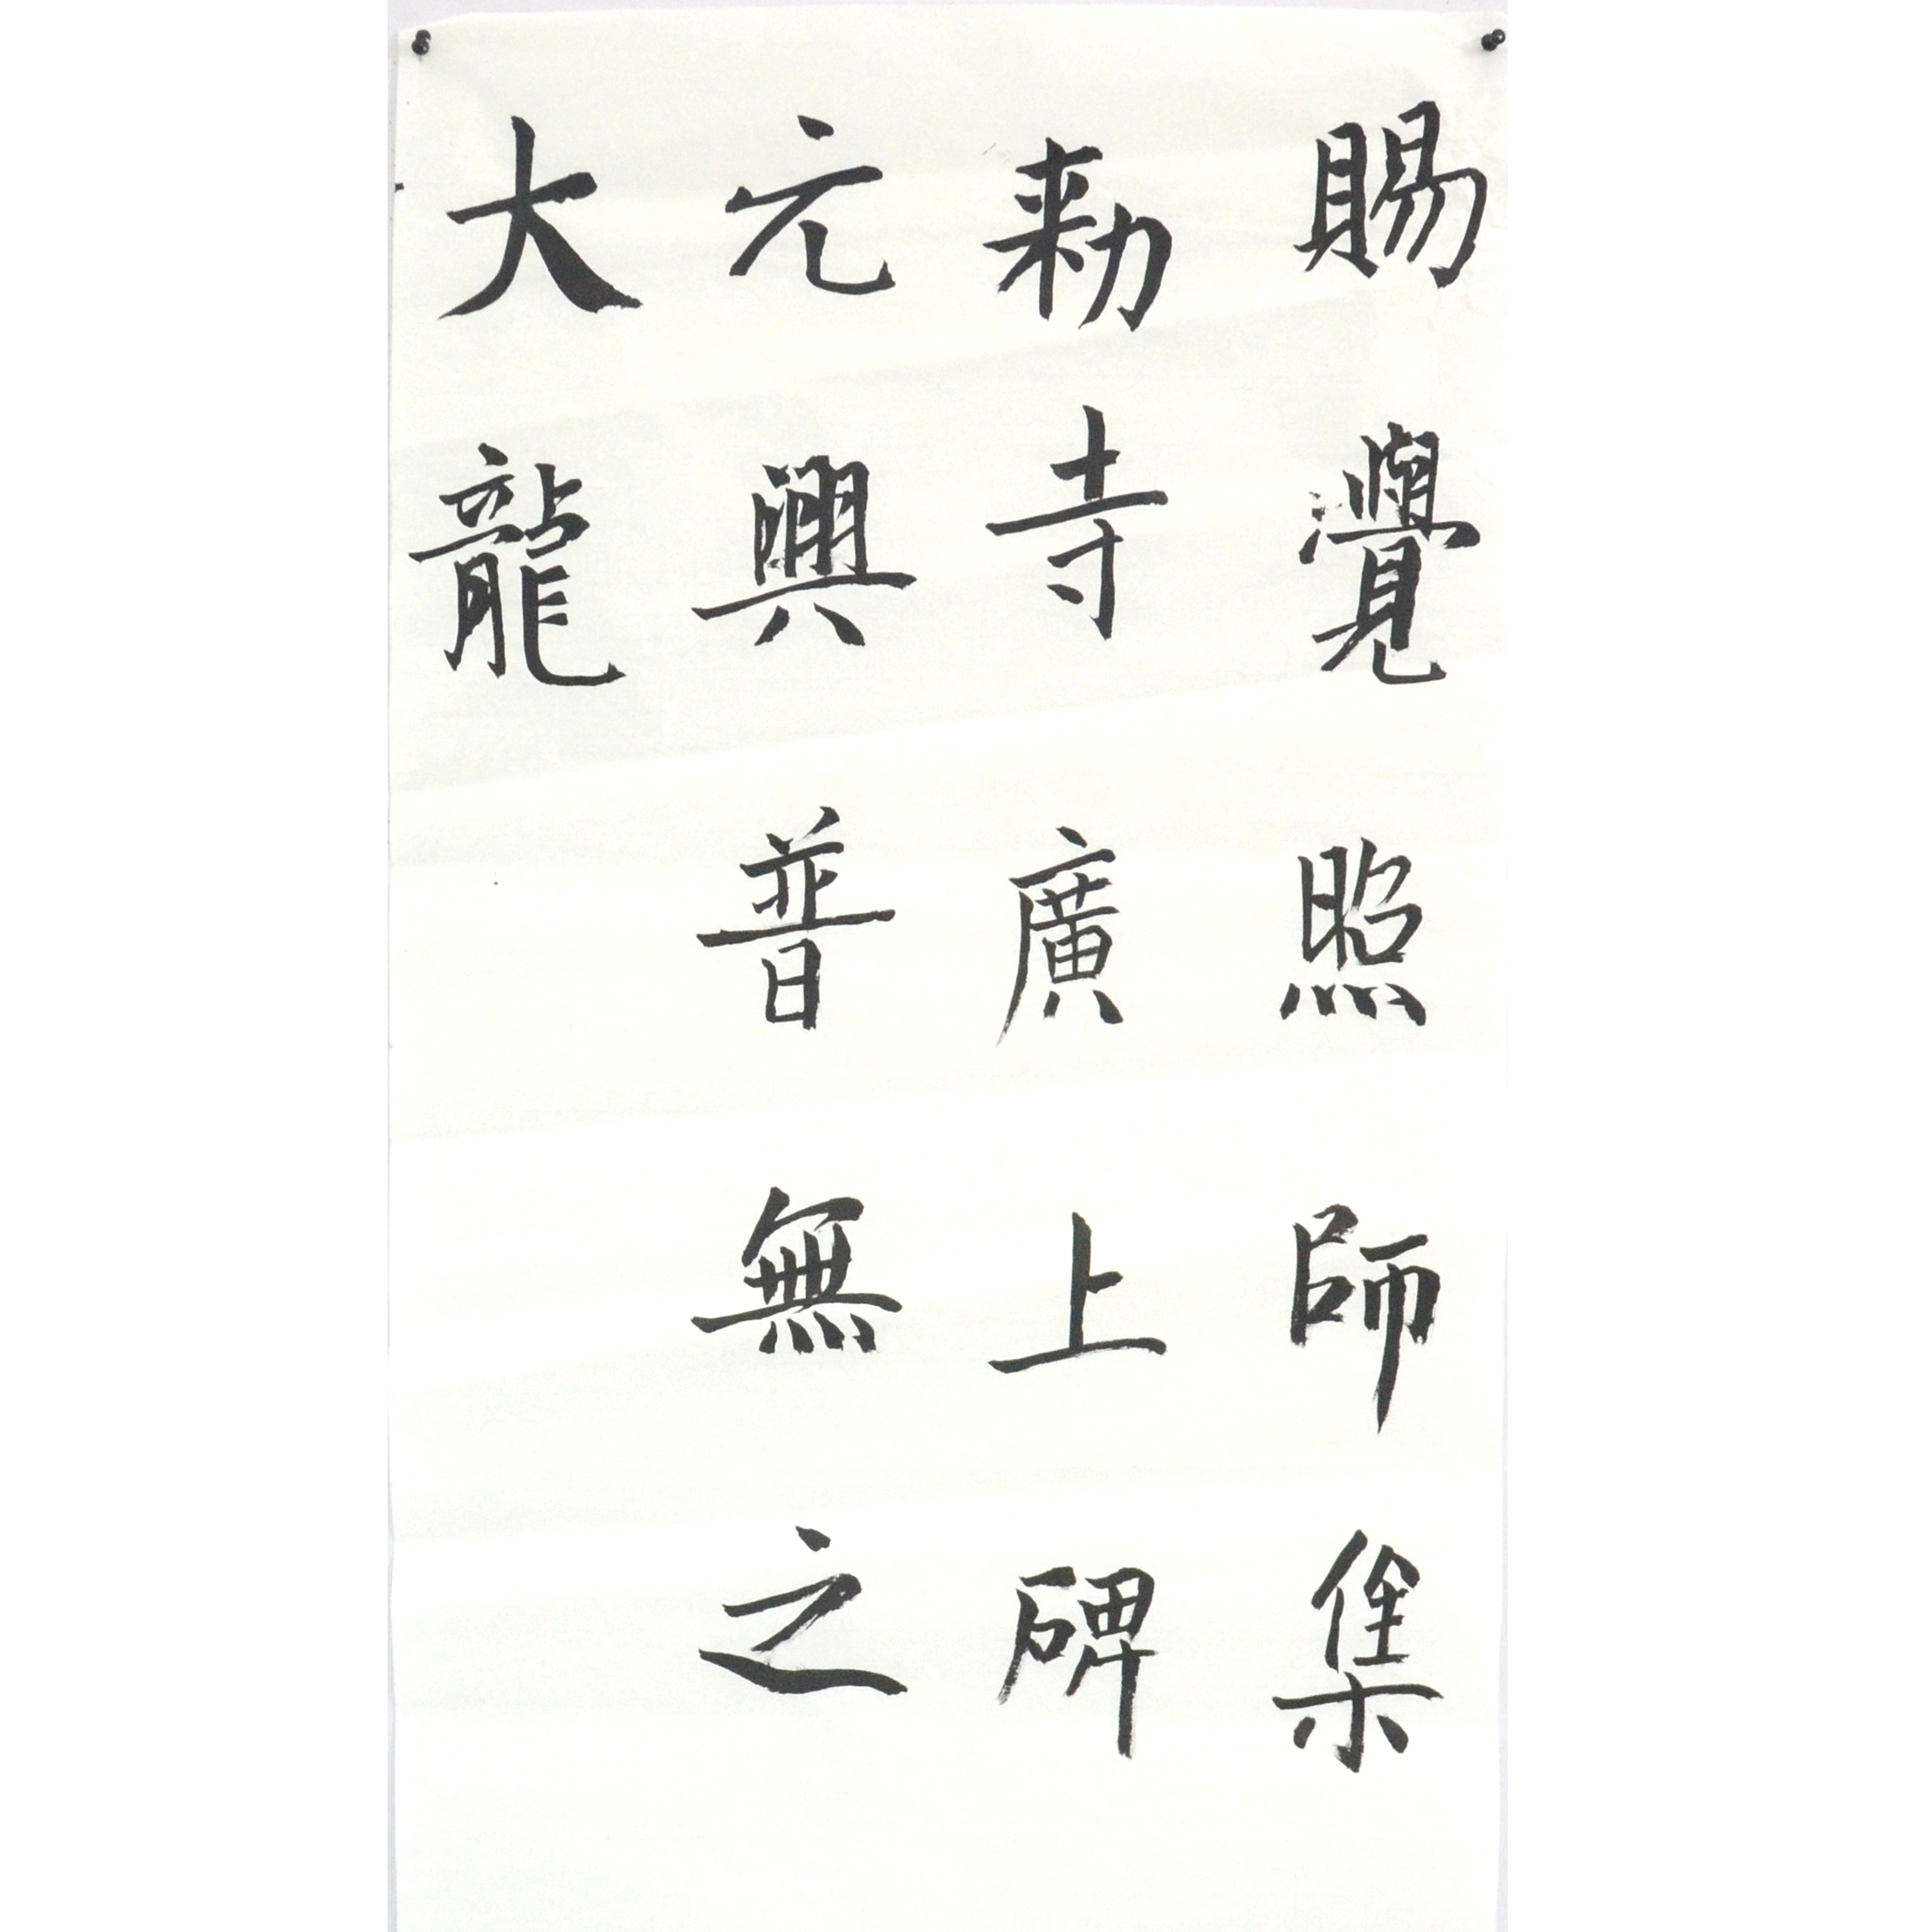 賜覺照師集
勅寺廣上碑
元興普無之
大龍